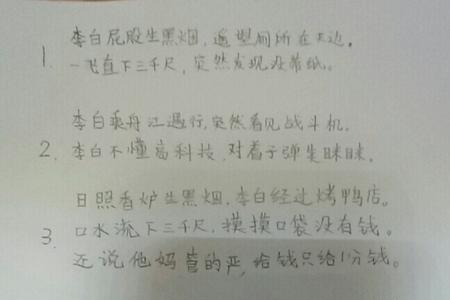 1. 李白屁股生黑烟，遥望厕所在天边。
一飞直下三千尺，突然发现没带纸。
李白乘舟江边行，突然看见战斗机，
2. 李白不懂高科技，对着子弹笑眯眯。
日照香炉生黑烟，李白经过烤鸭店。
3. 口水流下三千尺，摸摸口袋没有钱。
还说他妈管的严，给钱只给1分钱。